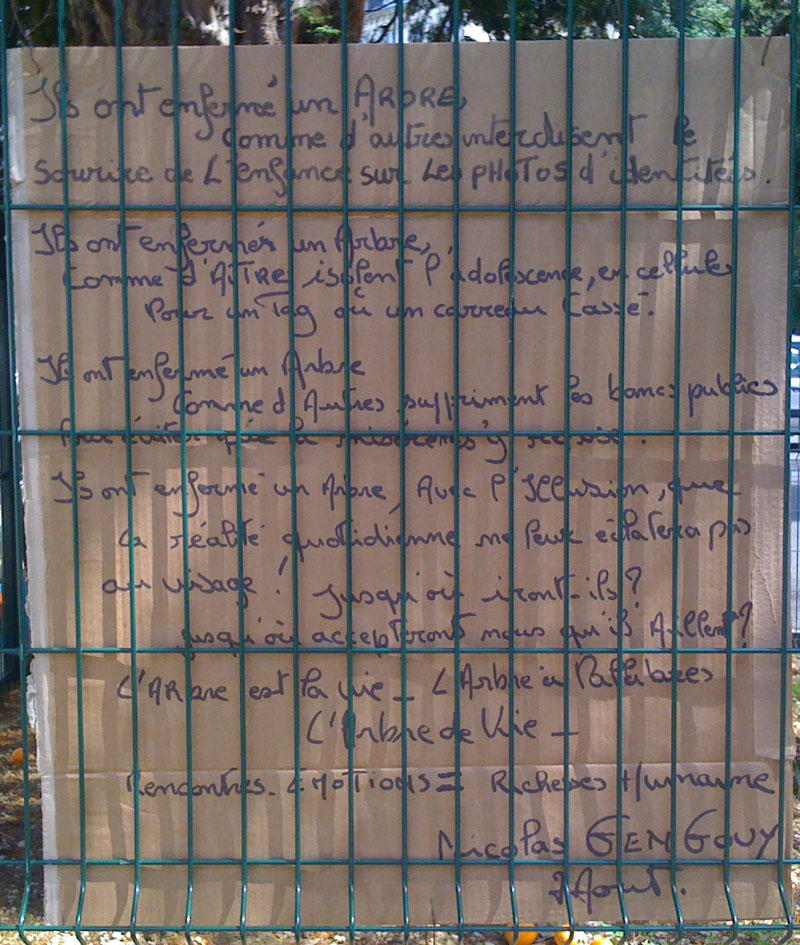 Ils ont enfermé un ARBRE,
comme d'autres interdisent le
sourire de L'enfance sur Les PHOTOS d'identités.
Ils ont enfermés un Arbre,
comme d'AUTRE isolent l'adolescence, en cellules
Pour un Tag où un carreau Cassé.
Ils ont enfermé un Arbre
comme d'Autres suppriment les bancs publics
Pour éviter que la misère s'y
Ils ont enfermé un Arbre, Avec l'Illusion, que
la réalité quotidienne ne leur éclatera pas
au visage ! Jusqu'où iront-ils ?
jusqu'où accepteront nous qu'ils Aillent ?
L'ARbre est la vie _ L'Arbre à Pallabres
L'Arbre de Vie _
Rencontres. EMOTIONS = Richesses Humaine
Nicolas GENGOUY
2 Aout.